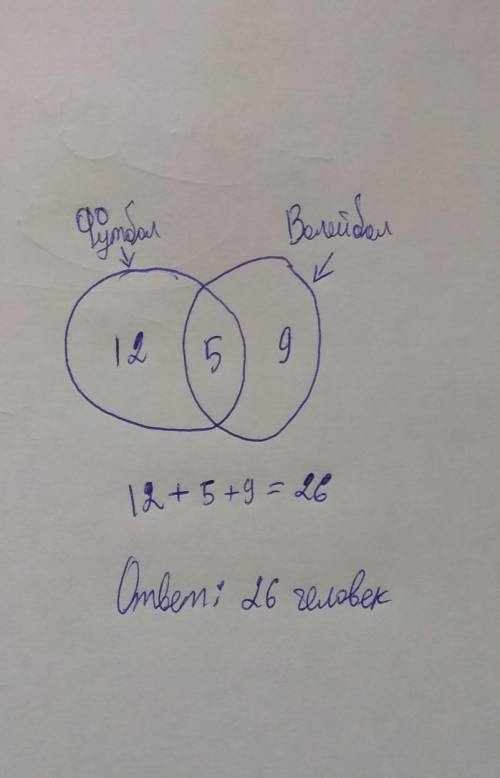 Футбол
Волейбол
12 5 9
12 + 5 + 9 = 26
Ответ: 26 человек